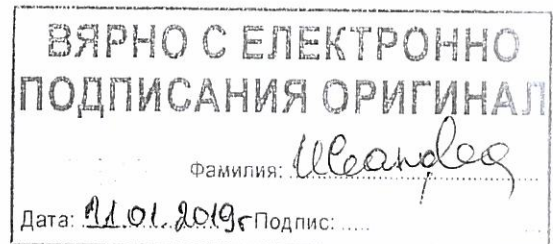 ВЯРНО С ЕЛЕКТРОННО
ПОДПИСАНИЯ ОРИГИНАЛ
Фамилия:
Дата: 11.01.2019г Подпис: